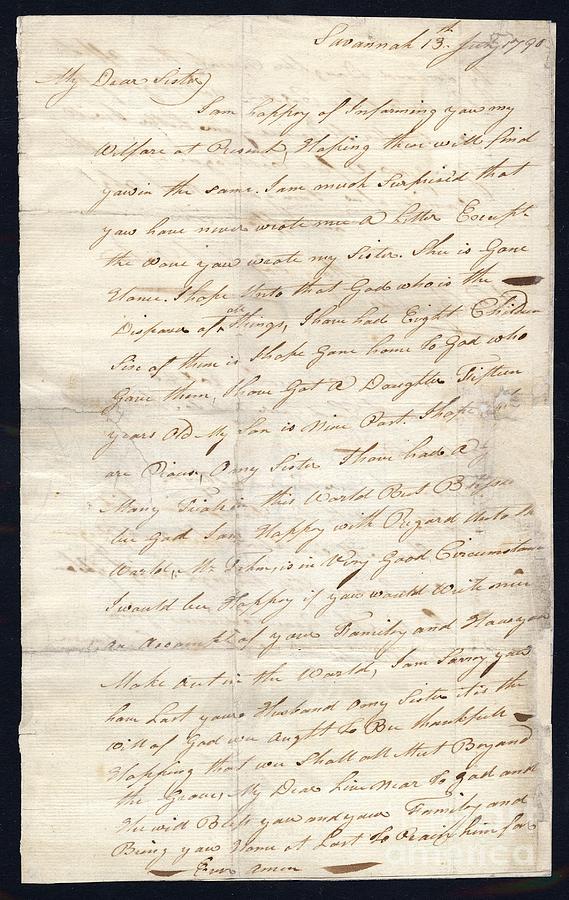 Savannah 13th July 1790
My Dear Sister
I am happy of Informing yaw my
Wilfare at Present, Hoping these will find
yaw in the same. I am much Surprised that
yaw have never wrote mee A Letter Except
the wone yaw wrote my Sister. She is Gone
Hance. I hope Unto that God who is the
Disposer of all things, I have had Eight Children
Six of them is I hope Gone home to God who
Gave them, I have Got A Daughter Fifteen
years Old My Son is Nine Past. I hope
are Pious, O my Sister I have had A
Many Trials in this World But Blessed
be God I am Happy with Regard Unto the
World, Mr. is in Very Good Circumstances
I would be Happy if yaw would Write mee
an Account of your Familey and How yaw
Make Out in the World, I am Sarrey yaw
have Last your Husband O my Sister it is the
will of God we Aught to Be thankfull
Hopping that we Shall all Meet Beyand
the Grave, My Dear Live near to god and
He will Bless yaw and your Familey and
Bring yaw Home at Last to Praise him for
Ever amen